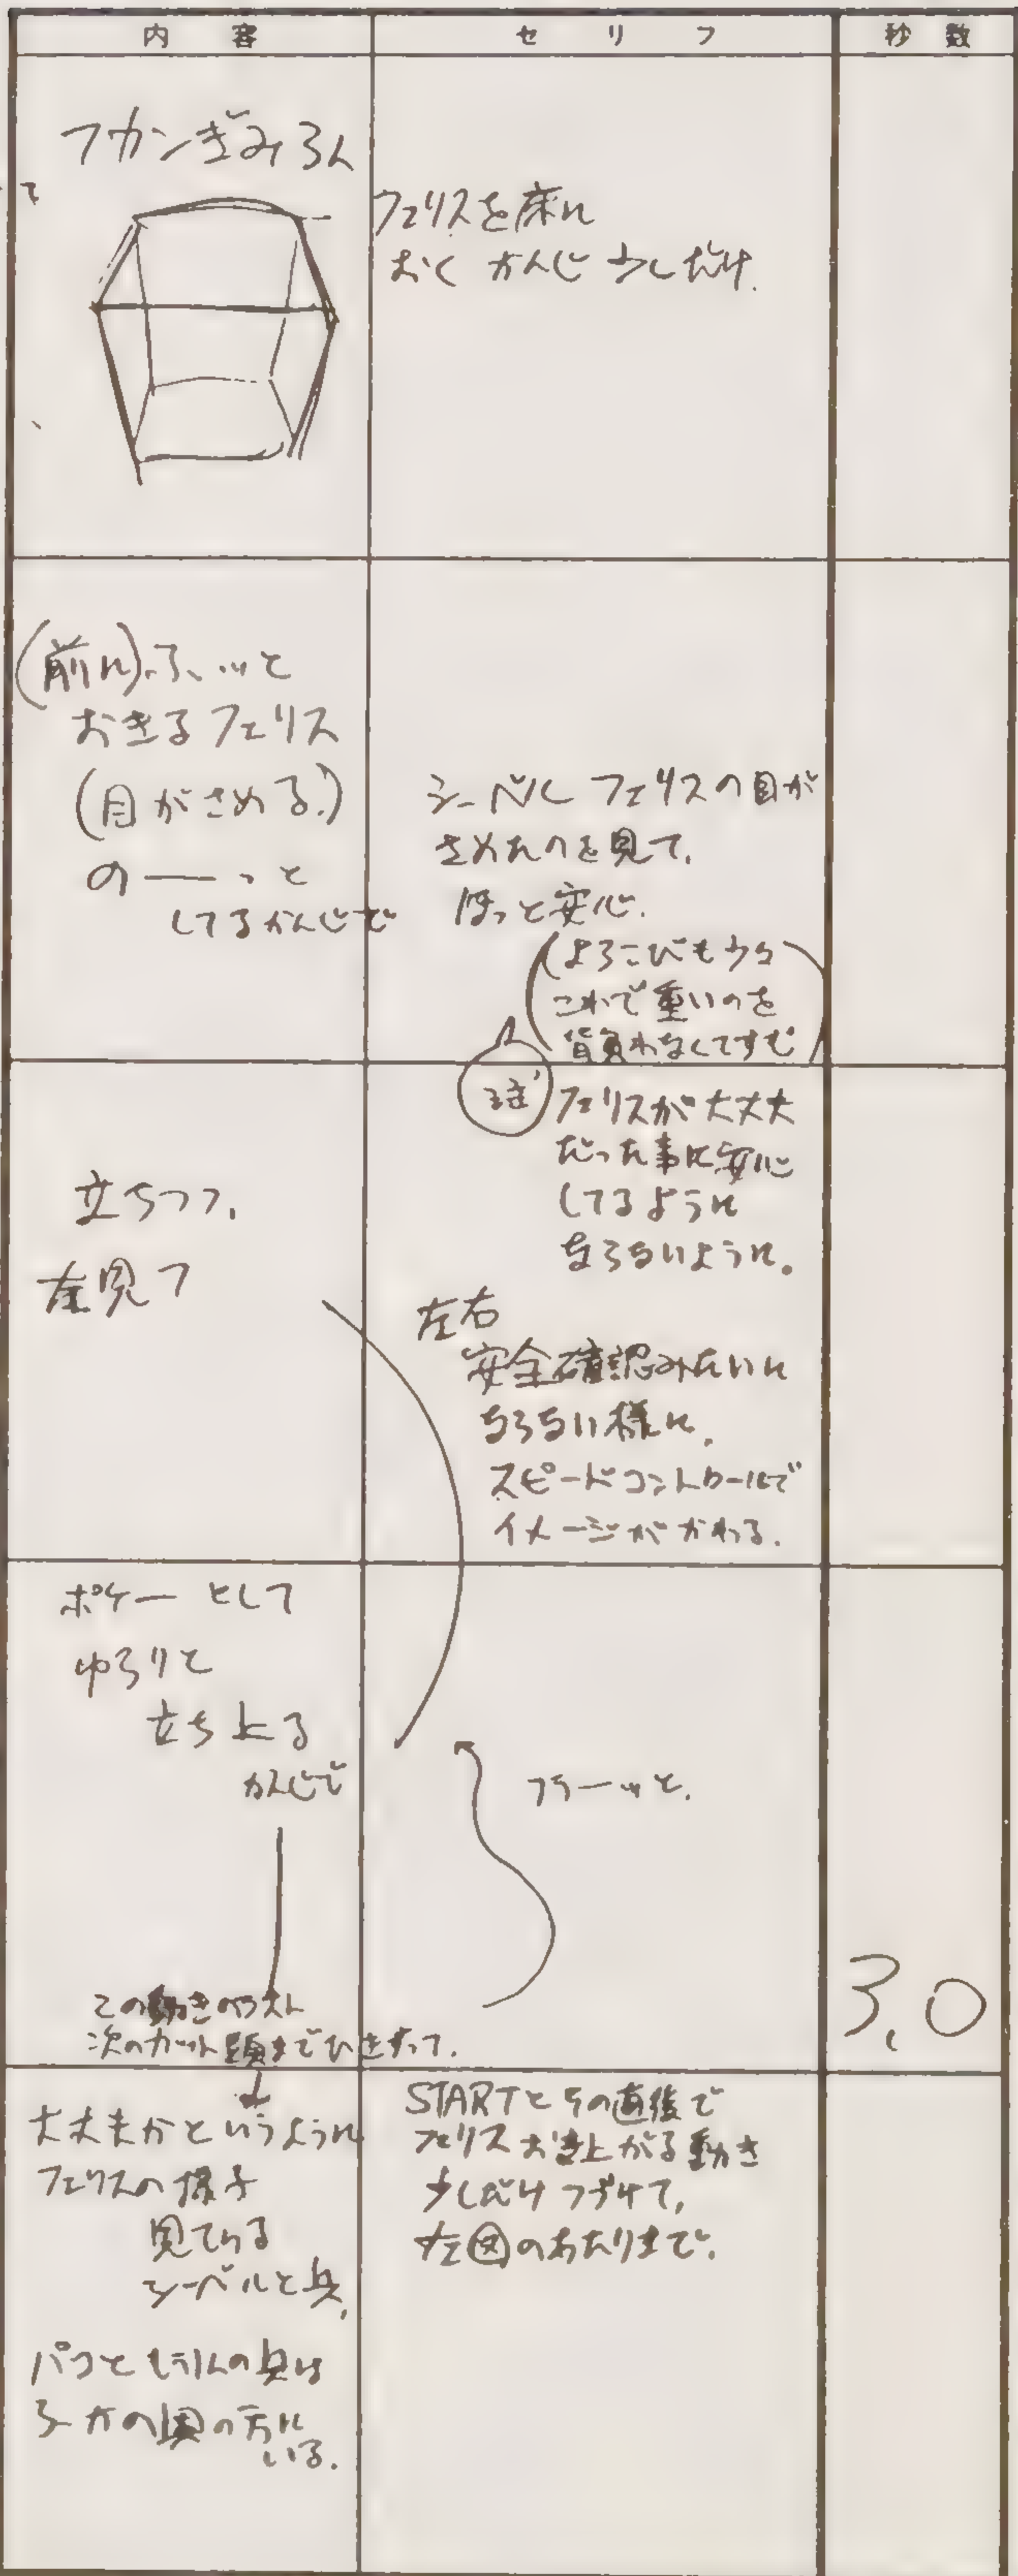 内容
セリフ
秒数
フカンぎみ
て
フェリスを床に
おく かんじ 少しだけ.
(前に)ふ、ッと
おきるフェリス
(目がさめる.)
の――っと
してるかんじで
シーベル フェリスの目が
さめたのを見て.
ほっと安心.
(よろこびも少々
これで重いのを
背負わなくてすむ)
注 フェリスが大丈夫
だった事に安心
してるように
ならないように。
立ちつつ.
左見て
左右
安全確認みたいに
ならない様に.
スピードコントロールで
イメージがかわる.
ポケーとして
ゆらりと
立ち上る
かんじで
フラーッと.
この動きのラスト
次のカット頭までひきずって.
3.0
大丈夫かというように
フェリスの様子
見ている
シーベルと兵.
パコともう1人の兵は
の方に
いる.
STARTとその直後で
フェリスおき上がる動き
少しだけつづけて,
左図のあたりまで.